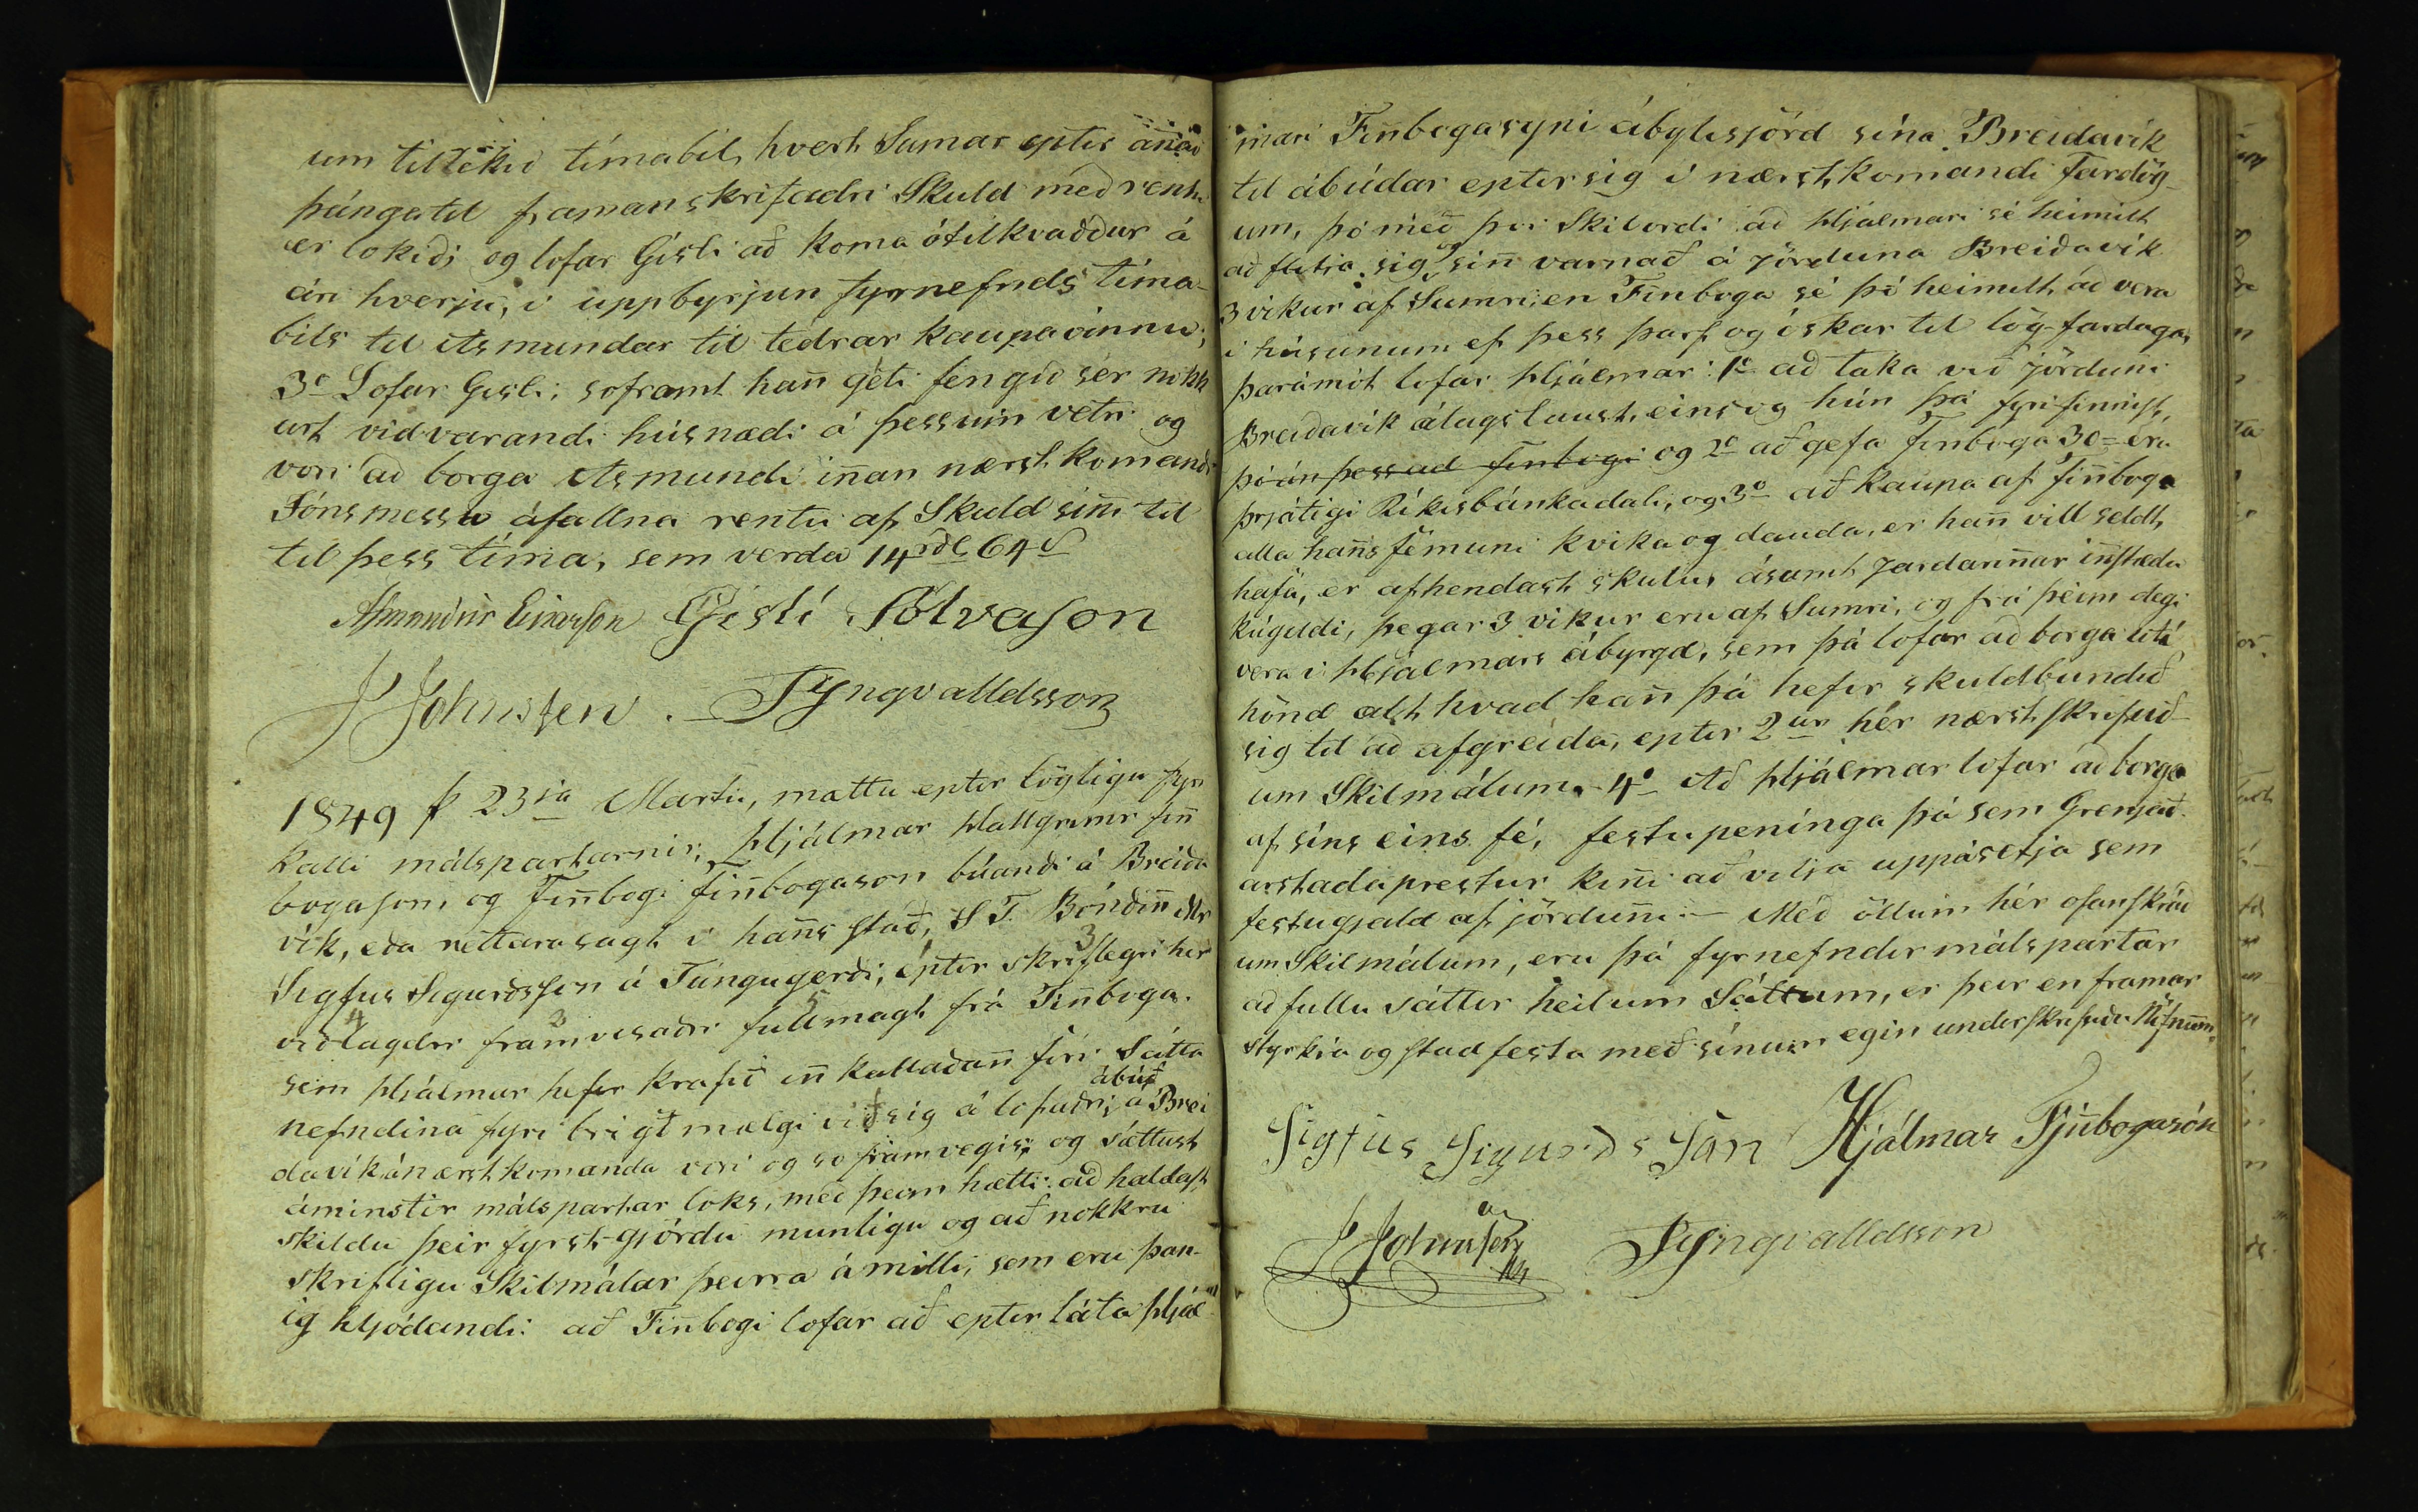 um tiltekið tímabil, hvert Sumar eptir annað
þángatil framanskrifadri Skuld með rentu
er lokið; og lofar Gísli að koma ótilkvaddur á
ári hverju, í uppbyrjun fyrnefnds tíma-
bils til Asmundar til tedrar kaupavinnu;
3o Lofar Gisli; soframt hann geti fengið sér nokk
urt vidvarandi húsnædi á þessum vetri og
vori að borga Asmundi innan nærstkomandi
Jónsmessu áfallna rentu af Skuld sinni til
til þess tíma, sem verda 14 rdl 64 s
Asmundur Einarson Gisli Sölvason
J Johnsen. TYngvalldsson
1849 þ 23ja Martii, mættu eptir lögligu fyri
kalli málspartarnir; Hjálmar Hallgrimr Finn
bogason, og Finnbogi Finnbogason búandi á Breida
vík, eda réttara sagt í hanns stað, S T. Bóndinn Mr
Sigfus Sigurdsson á Túngugerði; eptir skriflegri 3 her
vidlagdri 4 framvisadri 2 fullmagt 5 frá Finnboga.
sem Hjálmar hefur krafið innkalladann firi Sátta
nefndina fyri brigtmælgi við sig á lofaðri, ábúð á Brei
davik á nærstkomanda vori og so framvegis; og sættust
áminstir málspartar loks, með þeim hætti: að haldast
skildu þeir fyrst-gjördu munligu og að nokkru
skrifligu Skilmálar þeirra á milli, sem eru þan-
ig hljódandi: að Finnbogi lofar að eptir láta Hjál
mari Finnbogasyni ábylisjörd sína Breidavík
til ábúdar eptir sig í nærstkomandi Fardög-
um, þó með því Skilordi að Hjálmari sé heimilt
að flitja sig og sinn varnað á jörduna Breiðavík
3 vikur af Sumri; en Finboga sé þó heimilt, að vera
í húsunum ef þess þarf og óskar til lög-fardaga,
þarámót lofar Hjálmar: 1o að taka við jördunni
Breiðavík álagslaust, eins og hún þá fyrifinnist,
þó án þess ad Finbogi og 2o að gefa Finboga 30 = era
þrjátigi Rikisbánkadali, og 3o að kaupa af Finnboga
alla hanns fémuni kvika og dauda, er hann vill seldt
hafa, er afhendast skulu, ásamt Jardarinnar innstædu
kúgildi, þegar 3 vikur eru af Sumri, og frá þeim degi
vera í Hjálmars ábyrgd, sem þá lofar að borga útí
hönd alt hvad hann þá hefir skuldbundið
sig til að afgreida, eptir 2ur hér nærst skrifuð-
um Skilmálum. 4o Að Hjálmar lofar að borga
af síns eins fé, festu peninga þá sem Grenjað-
arstadaprestur kinni að vilja uppásetja sem
festugjald af jördunni. – Með öllum hér ofanskráð
um Skilmálum, eru þá fyrnefndir málspartar
að fullu sáttir heilum Sáttum, er þeir en framar
styrkia og stadfesta með sínum egin underskrifuðu Nöfnum.
Sigfus Sigurdsson Hjálmar Finnbogason
J Johnsen TYngvalldsson